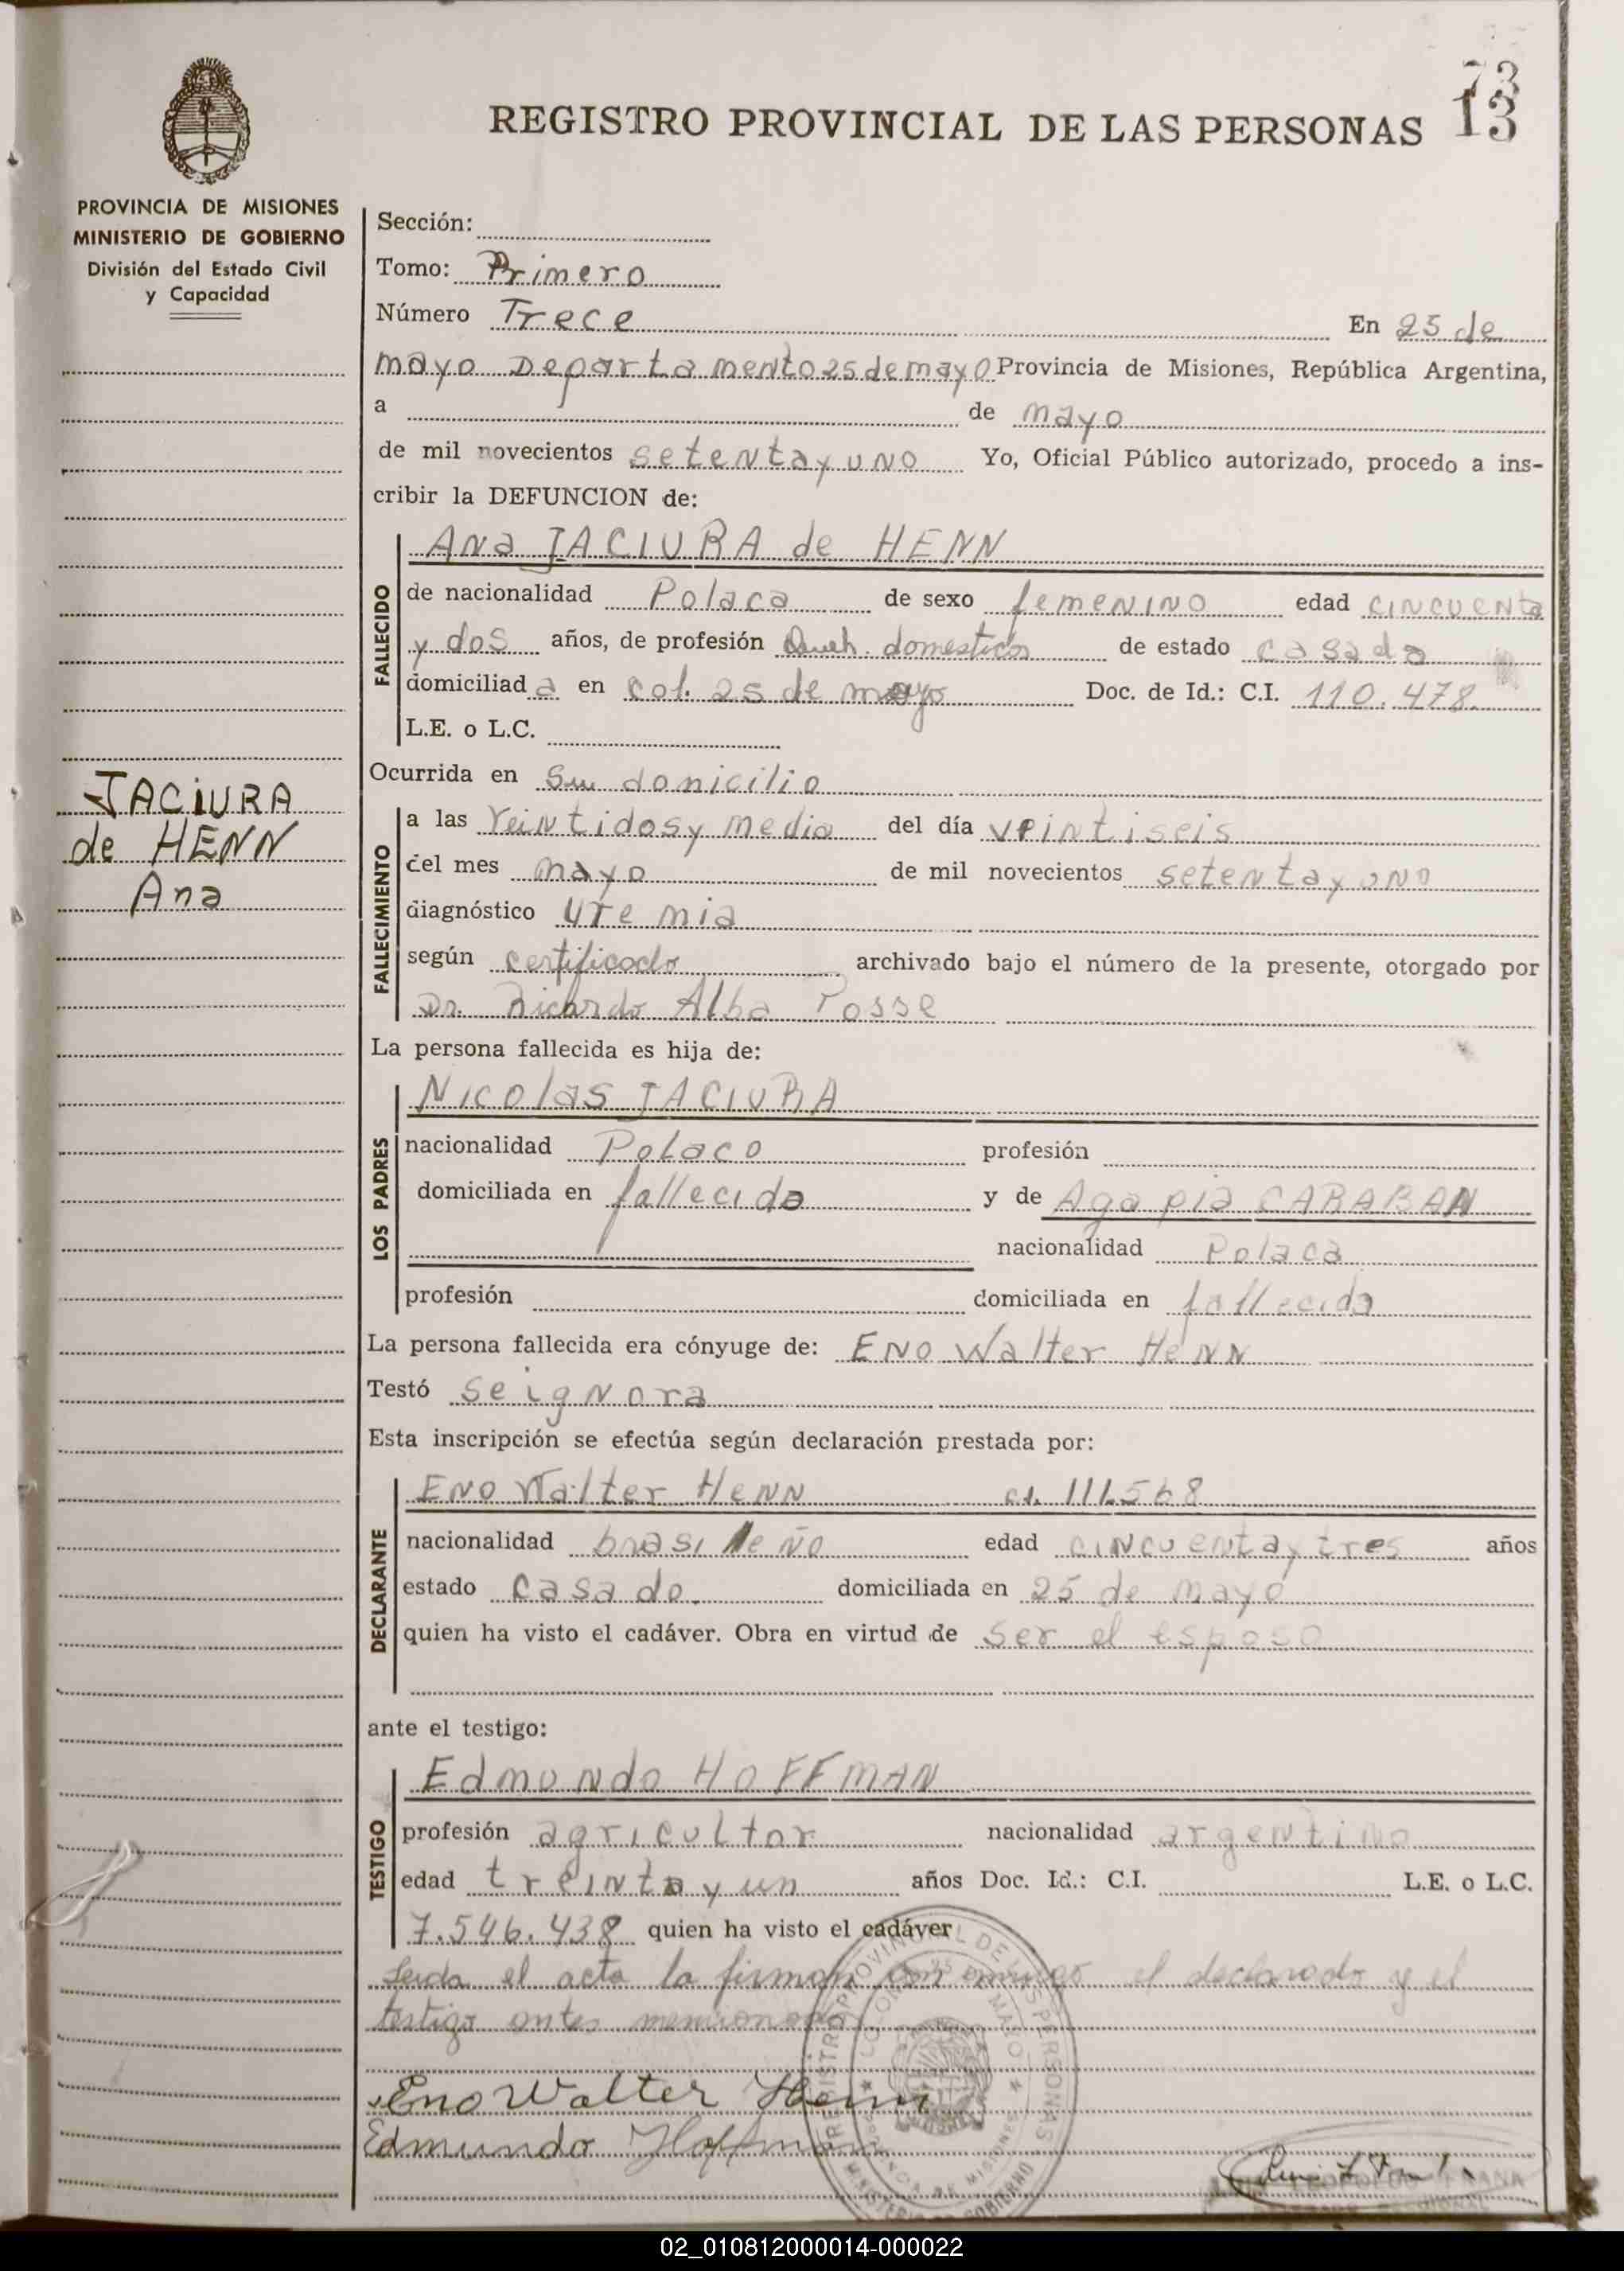 73
13
REGISTRO PROVINCIAL DE LAS PERSONAS
PROVINCIA DE MISIONES
MINISTERIO DE GOBIERNO
División del Estado Civil
y Capacidad
Sección:
Tomo: Primero
Número Trece En 25 de
mayo Departamento 25 de mayo Provincia de Misiones, República Argentina,
a de mayo
de mil novecientos setenta y uno Yo, Oficial Público autorizado, procedo a ins-
cribir la DEFUNCION de:
Ana JACIURA de HENN
FALLECIDO
de nacionalidad Polaca de sexo femenino edad cincuenta
y dos años, de profesión Queh. domesticos de estado casada
domiciliada en col. 25 de mayo Doc. de Id.: C.I. 110.478.
L.E. o L.C.
Ocurrida en Su domicilio
JACIURA
de HENN
Ana
FALLECIMIENTO
a las Veintidos y media del día veintiseis
del mes mayo de mil novecientos setenta y uno
diagnóstico uremia
según certificado archivado bajo el número de la presente, otorgado por
Dr. Ricardo Alba Posse
La persona fallecida es hija de:
Nicolas JACIURA
LOS PADRES
nacionalidad Polaco profesión
domiciliada en fallecido y de Agapia CARABAN
nacionalidad Polaca
profesión domiciliada en fallecida
La persona fallecida era cónyuge de: Eno Walter Henn
Testó se ignora
Esta inscripción se efectúa según declaración prestada por:
Eno Walter Henn c.i. 111.568
DECLARANTE
nacionalidad brasileño edad cincuenta y tres años
estado casado. domiciliada en 25 de mayo
quien ha visto el cadáver. Obra en virtud de ser el esposo
ante el testigo:
Edmundo HOFFMAN
TESTIGO
profesión agricultor nacionalidad argentino
edad treinta y un años Doc. Id.: C.I. L.E. o L.C.
7.546.438 quien ha visto el cadáver
Leida el acta la firman con migo el declarado y el
testigo antes mencionado
Eno Walter Henn
Edmundo Hoffmann
02_010812000014-000022